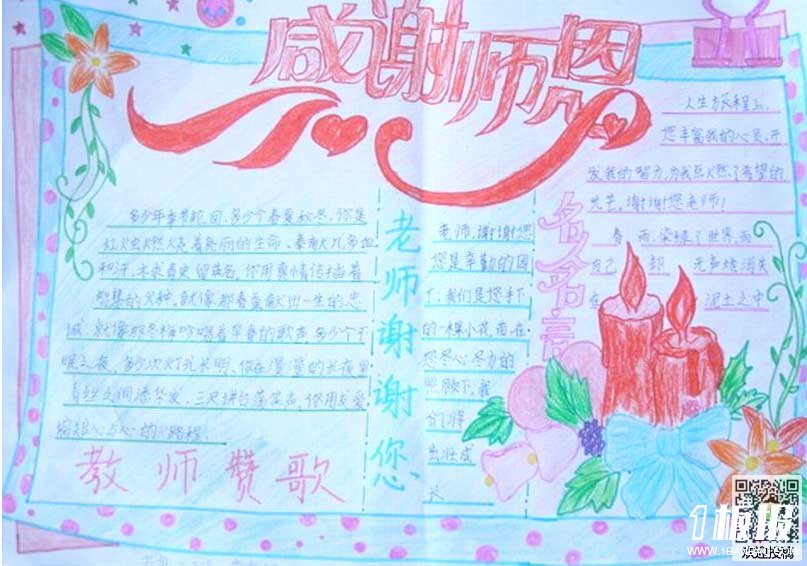 感谢师恩
多少年季节轮回,多少个春夏秋冬,你是
红火烛燃烧着亮丽的生命,奉献几多血
和汗,不求青史留英名,你用真情传播着
智慧的火种,就像那春蚕献出一生的忠
诚,就像那冬梅吟唱着早春的歌声,多少个不
眠之夜,多少次灯光长明,你在漫漫的长夜里
青丝之间添华发,三尺讲台
心与心的路程.
教师赞歌
老师谢谢您
老师,谢谢您
您是辛勤的园
丁,我们是您手下
的一棵小花苗,在
您尽心尽力的
照顾下,我
们得
茁壮成
长
名人名言
人生旅程上,
您丰富我的心灵,开
发我的智力,为我点燃了希望的
光芒,谢谢您老师!
春雨,染绿了世界,而
自己却无声地消失
在泥土之中
1板报
WWW.1BANBAO.COM
欢迎投稿